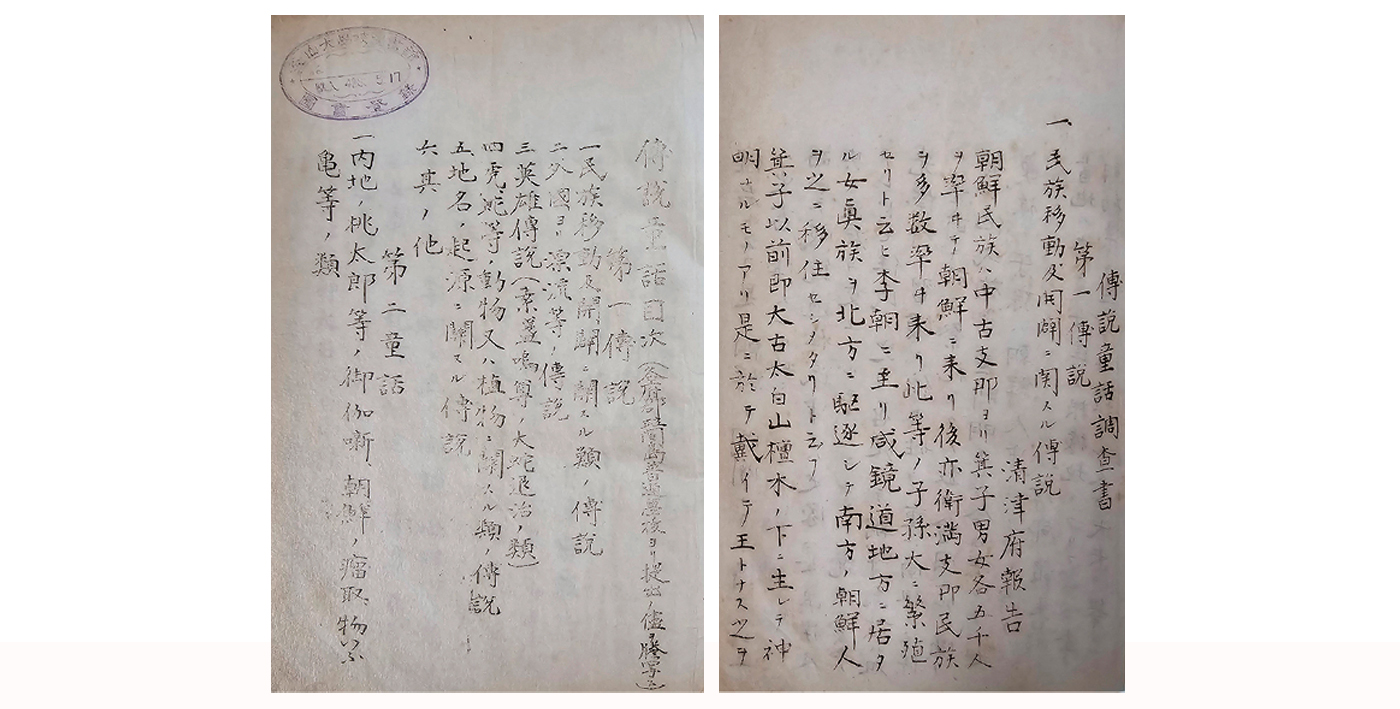 傳說童話目次
第一傳說
一民族移動及開闢ニ關スル類ノ傳說
二外國ヨリ漂流等ノ傳說
三英雄傳說(素盞嗚尊ノ大蛇退治ノ類)
四虎、蛇等ノ動物又ハ植物ニ關スル類ノ傳說
五地名ノ起源ニ關スル傳說
六其ノ他
第二童話
一內地ノ桃太郎等ノ御伽噺、朝鮮ノ瘤取、物いふ
亀等ノ類
傳說童話調查書
第一傳說
清津府報告
一、民族移動及開闢ニ関スル傳説
朝鮮民族ハ中古支那ヨリ箕子男女各五千人
ヲ率ヰテ朝鮮ニ来リ後亦衛満支那民族
ヲ多数率ヰ来リ此等ノ子孫大ニ繁殖
セリト云ヒ李朝ニ至リ咸鏡道地方ニ居タ
ル女眞族ヲ北方ニ駆逐シテ南方ノ朝鮮人
ヲ之ニ移住セシメタリト云フ
箕子以前即大古太白山檀木ノ下ニ生レテ神
明ナルモノアリ是ニ於テ戴イテ王トナス之ヲ